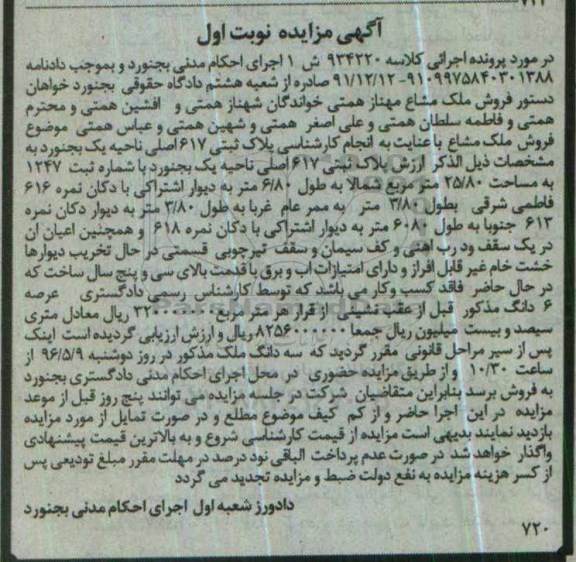 آگهی مزایده نوبت اول
در مورد پرونده اجرائی کلاسه ۹۳۴۲۲۰ ش ۱ اجرای احکام مدنی بجنورد و بموجب دادنامه
۹۱۰۹۹۷۵۸۴۰۳۰۱۳۸۸-۹۱/۱۲/۱۲ صادره از شعبه هشتم دادگاه حقوقی بجنورد خواهان
دستور فروش ملک مشاع مهناز همتی خواندگان شهناز همتی و افشین همتی و محترم
همتی و فاطمه سلطان همتی و علی اصغر همتی و شهین همتی و عباس همتی موضوع
فروش ملک مشاع با عنایت به انجام کارشناسی پلاک ثبتی ۶۱۷ اصلی ناحیه یک بجنورد به
مشخصات ذیل الذکر ارزش پلاک ثبتی ۶۱۷ اصلی ناحیه یک بجنورد با شماره ثبت ۱۲۴۷
به مساحت ۲۵/۸۰ متر مربع شمالا به طول ۶/۸۰ متر به دیوار اشتراکی با دکان نمره ۶۱۶
فاطمی شرقی بطول ۳/۸۰ متر به ممر عام غربا به طول ۳/۸۰ متر به دیوار دکان نمره
۶۱۳ جنوبا به طول ۶۰۸۰ متر به دیوار اشتراکی با دکان نمره ۶۱۸ و همچنین اعیان ان
در یک سقف ود رب اهنی و کف سیمان و سقف تیرچوبی قسمتی در حال تخریب دیوارها
خشت خام غیر قابل افراز و دارای امتیازات اب و برق با قدمت بالای سی و پنج سال ساخت که
در حال حاضر فاقد کسب و کار می باشد که توسط کارشناس رسمی دادگستری عرصه
۶ دانگ مذکور قبل از عقب نشینی از قرار هر متر مربع ۳۲۰۰۰۰۰۰۰ ریال معادل متری
سیصد و بیست میلیون ریال جمعا ۸۲۵۶۰۰۰۰۰۰ ریال و ارزش ارزیابی گردیده است اینک
پس از سیر مراحل قانونی مقرر گردید که سه دانگ ملک مذکور در روز دوشنبه ۹۶/۵/۹ از
ساعت ۱۰/۳۰ و از طریق مزایده حضوری در محل اجرای احکام مدنی دادگستری بجنورد
به فروش برسد بنابراین متقاضیان شرکت در جلسه مزایده می توانند پنج روز قبل از موعد
مزایده در این اجرا حاضر و از کم کیف موضوع مطلع و در صورت تمایل از مورد مزایده
بازدید نمایند بدیهی است مزایده از قیمت کارشناسی شروع و به بالاترین قیمت پیشنهادی
واگذار خواهد شد در صورت عدم پرداخت الباقی نود درصد در مهلت مقرر مبلغ تودیعی پس
از کسر هزینه مزایده به نفع دولت ضبط و مزایده تجدید می گردد
دادورز شعبه اول اجرای احکام مدنی بجنورد
۷۲۰